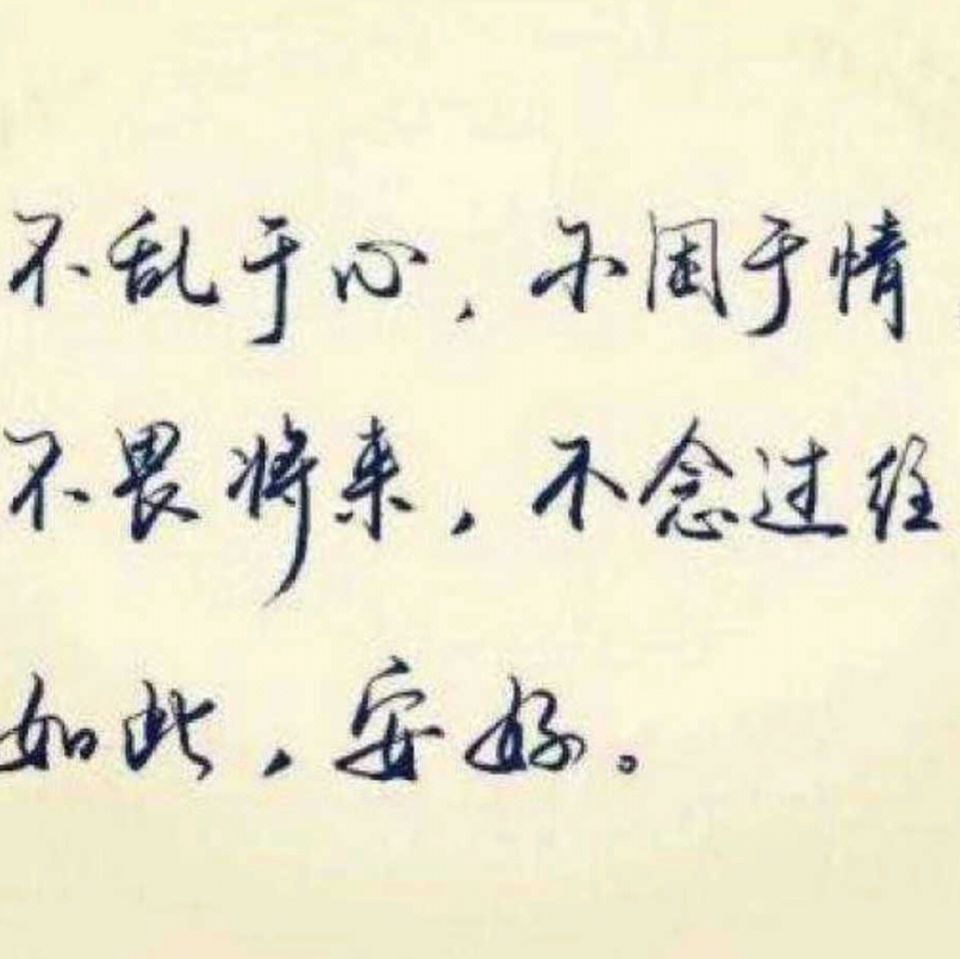 不乱于心，不困于情，
不畏将来，不念过经
如此，安好。